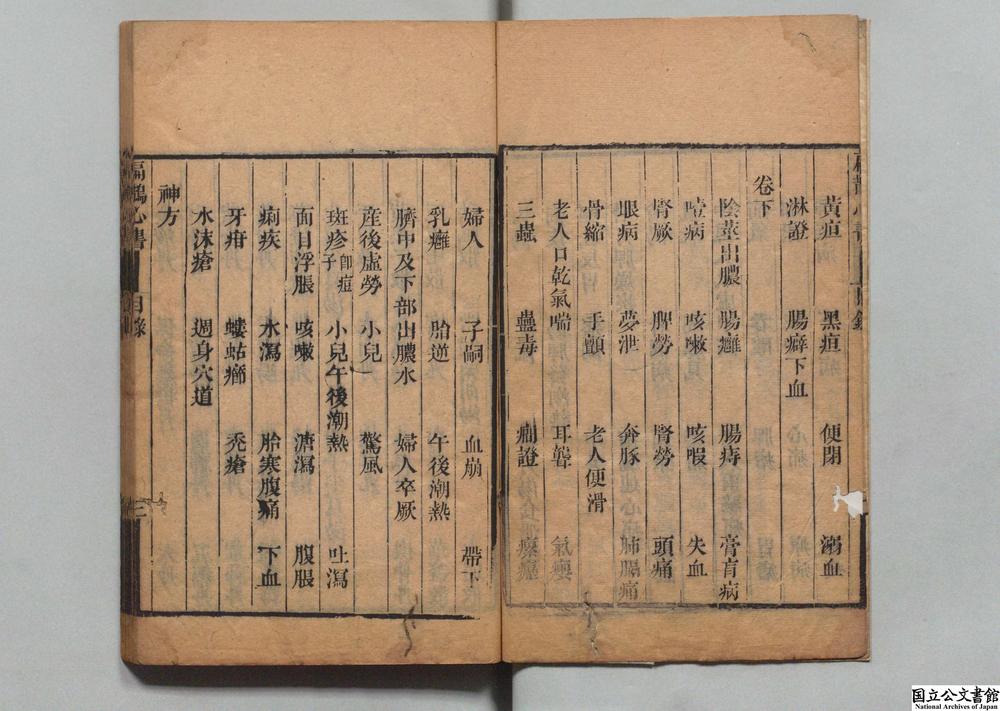 黃疸 黑疸 便閉 溺血
淋證 腸癖下血
卷下
陰莖出膿 腸癰 腸痔 膏肓病
噎病 咳嗽 咳暇 失血
腎厥 脾勞 腎勞 頭痛
眼病 夢泄 奔豚 肺腸痛
骨縮 手顫 老人便滑
老人口乾氣喘 耳聾 氣癭
三蟲 蠱毒 癎證 瘰癧
婦人 子嗣 血崩 帶下
乳癰 胎逆 午後潮熱
臍中及下部出膿水 婦人卒厥
産後虛勞 小兒 驚風
斑疹 卽痘子 小兒午後潮熱 吐瀉
面目浮脹 咳嗽 溏瀉 腹脹
痢疾 水瀉 胎寒腹痛 下血
牙疳 螻蛄癤 禿瘡
水沫瘡 週身穴道
神方
扁鵲心書 目錄 三
国立公文書館
National Archives of Japan